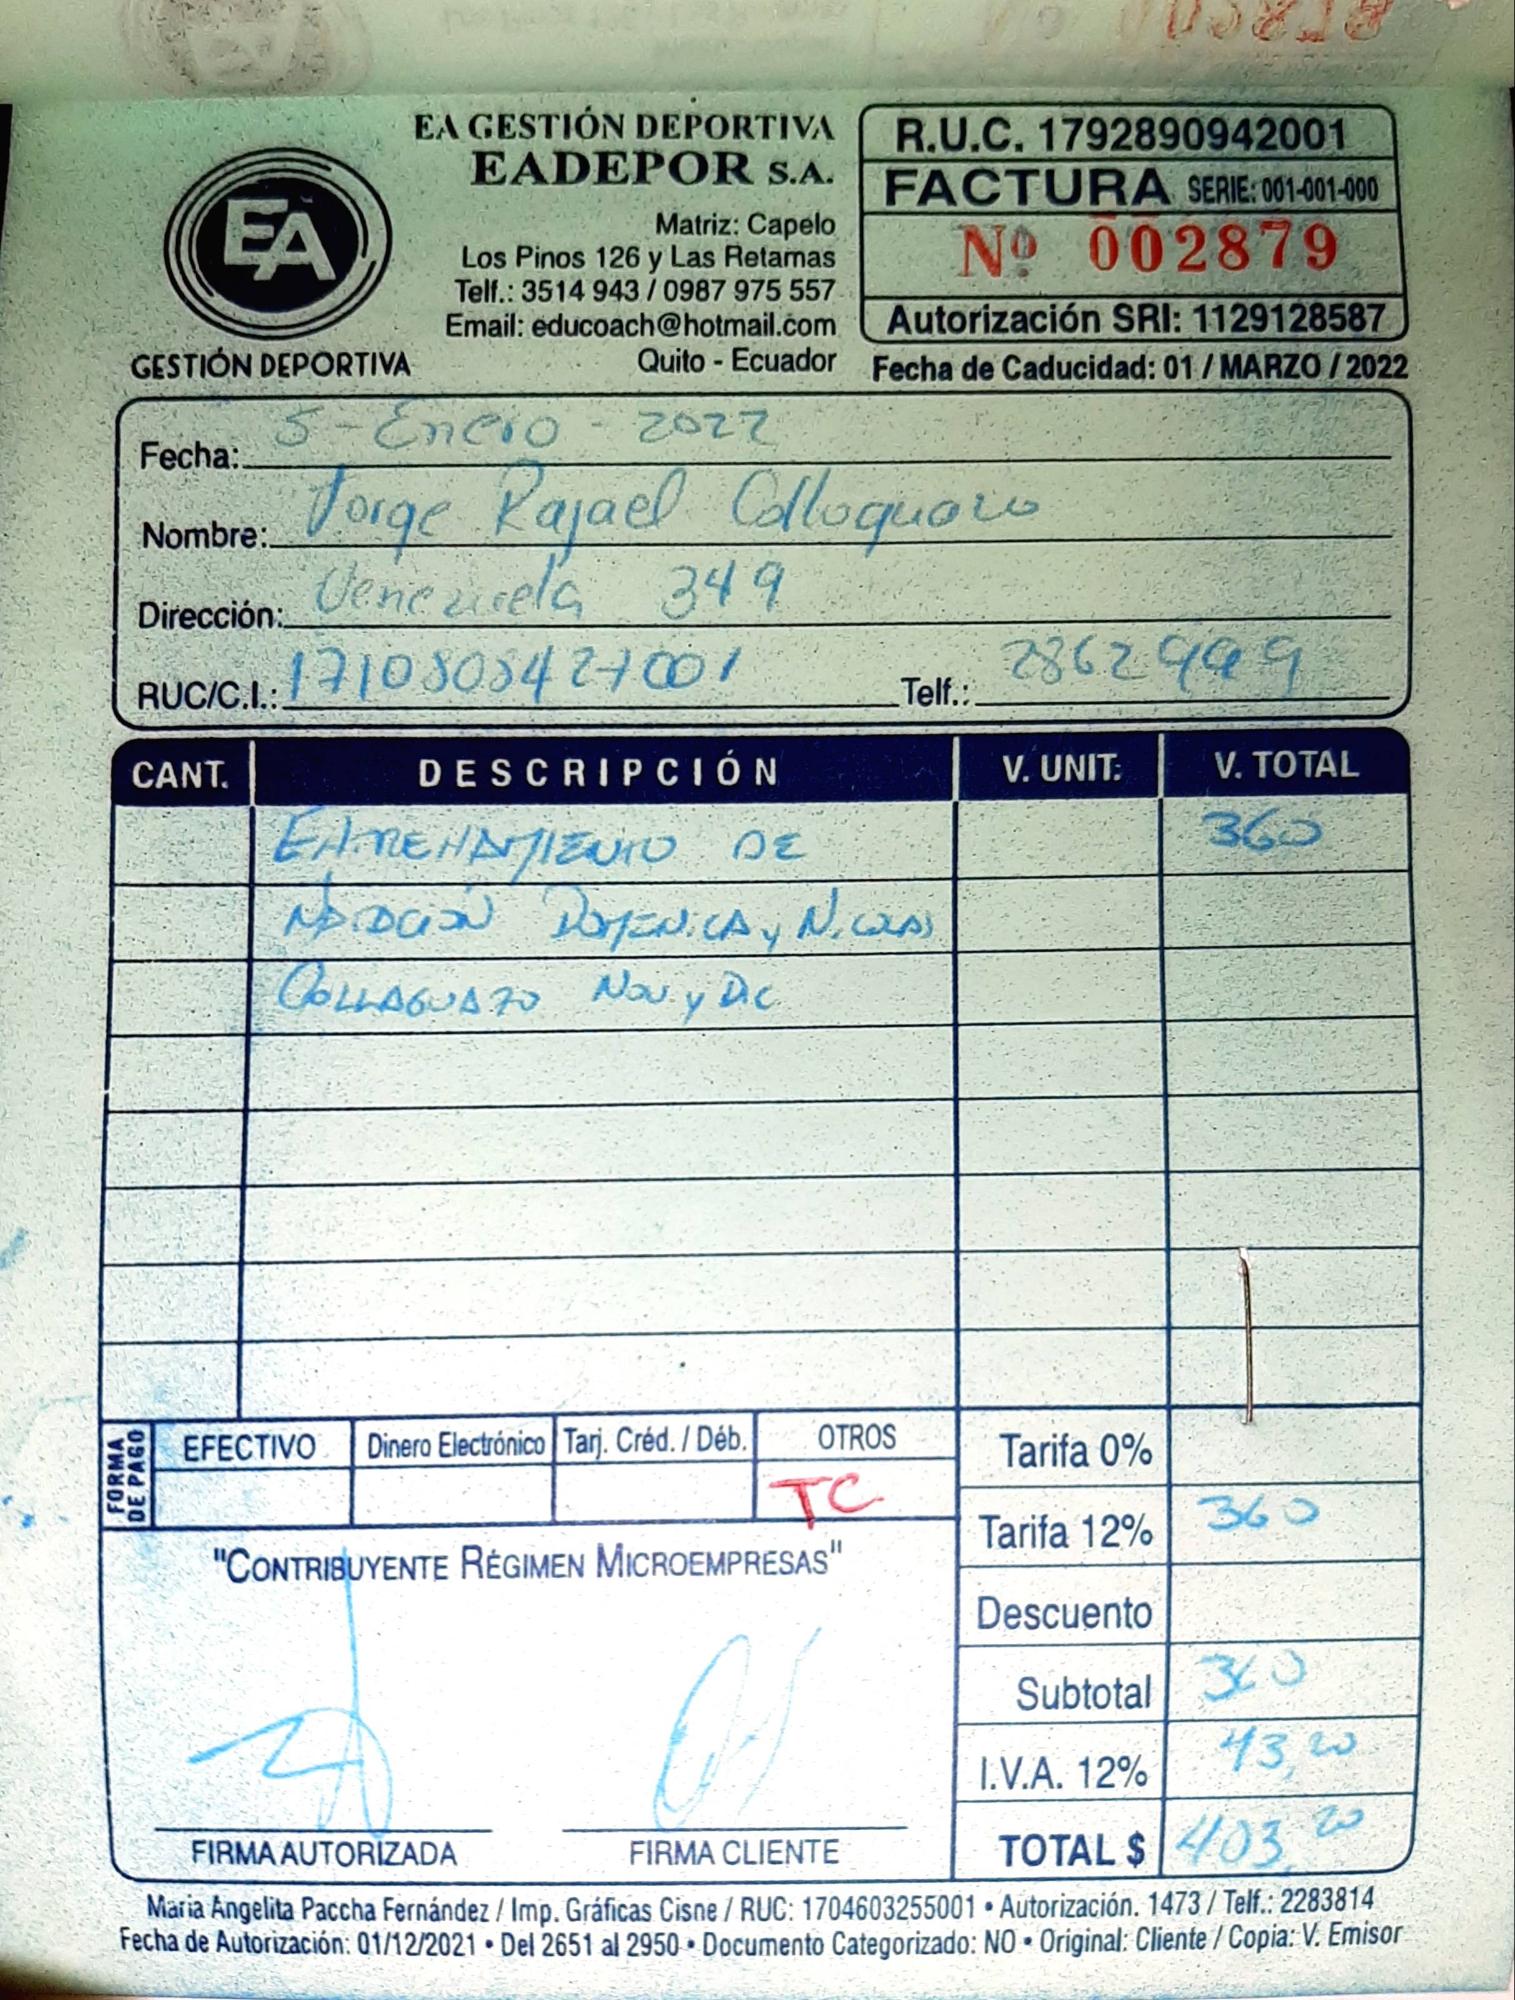 EA GESTIÓN DEPORTIVA
EADEPOR S.A.
Matriz: Capelo
Los Pinos 126 y Las Retamas
Telf.: 3514 943 / 0987 975 557
Email: educoach@hotmail.com
Quito - Ecuador
EA
GESTIÓN DEPORTIVA
R.U.C. 1792890942001
FACTURA SERIE: 001-001-000
Nº 002879
Autorización SRI: 1129128587
Fecha de Caducidad: 01 / MARZO / 2022
Fecha: 5 - Enero - 2022
Nombre: Jorge Rafael Collaguazo
Dirección: Venezuela 349
RUC/C.I.: 1710808427001 Telf.: 2862999
CANT. DESCRIPCIÓN V. UNIT: V. TOTAL
ENTRENAMIENTO DE 360
NATACIÓN DOMENICA y NICOLAS
COLLAGUAZO Nov. y Dic
FORMA DE PAGO
EFECTIVO Dinero Electrónico Tarj. Créd. / Déb. OTROS
TC
Tarifa 0%
Tarifa 12% 360
Descuento
Subtotal 360
I.V.A. 12% 43,20
TOTAL $ 403,20
"CONTRIBUYENTE RÉGIMEN MICROEMPRESAS"
FIRMA AUTORIZADA FIRMA CLIENTE
Maria Angelita Paccha Fernández / Imp. Gráficas Cisne / RUC: 1704603255001 • Autorización. 1473 / Telf.: 2283814
Fecha de Autorización: 01/12/2021 • Del 2651 al 2950 • Documento Categorizado: NO • Original: Cliente / Copia: V. Emisor